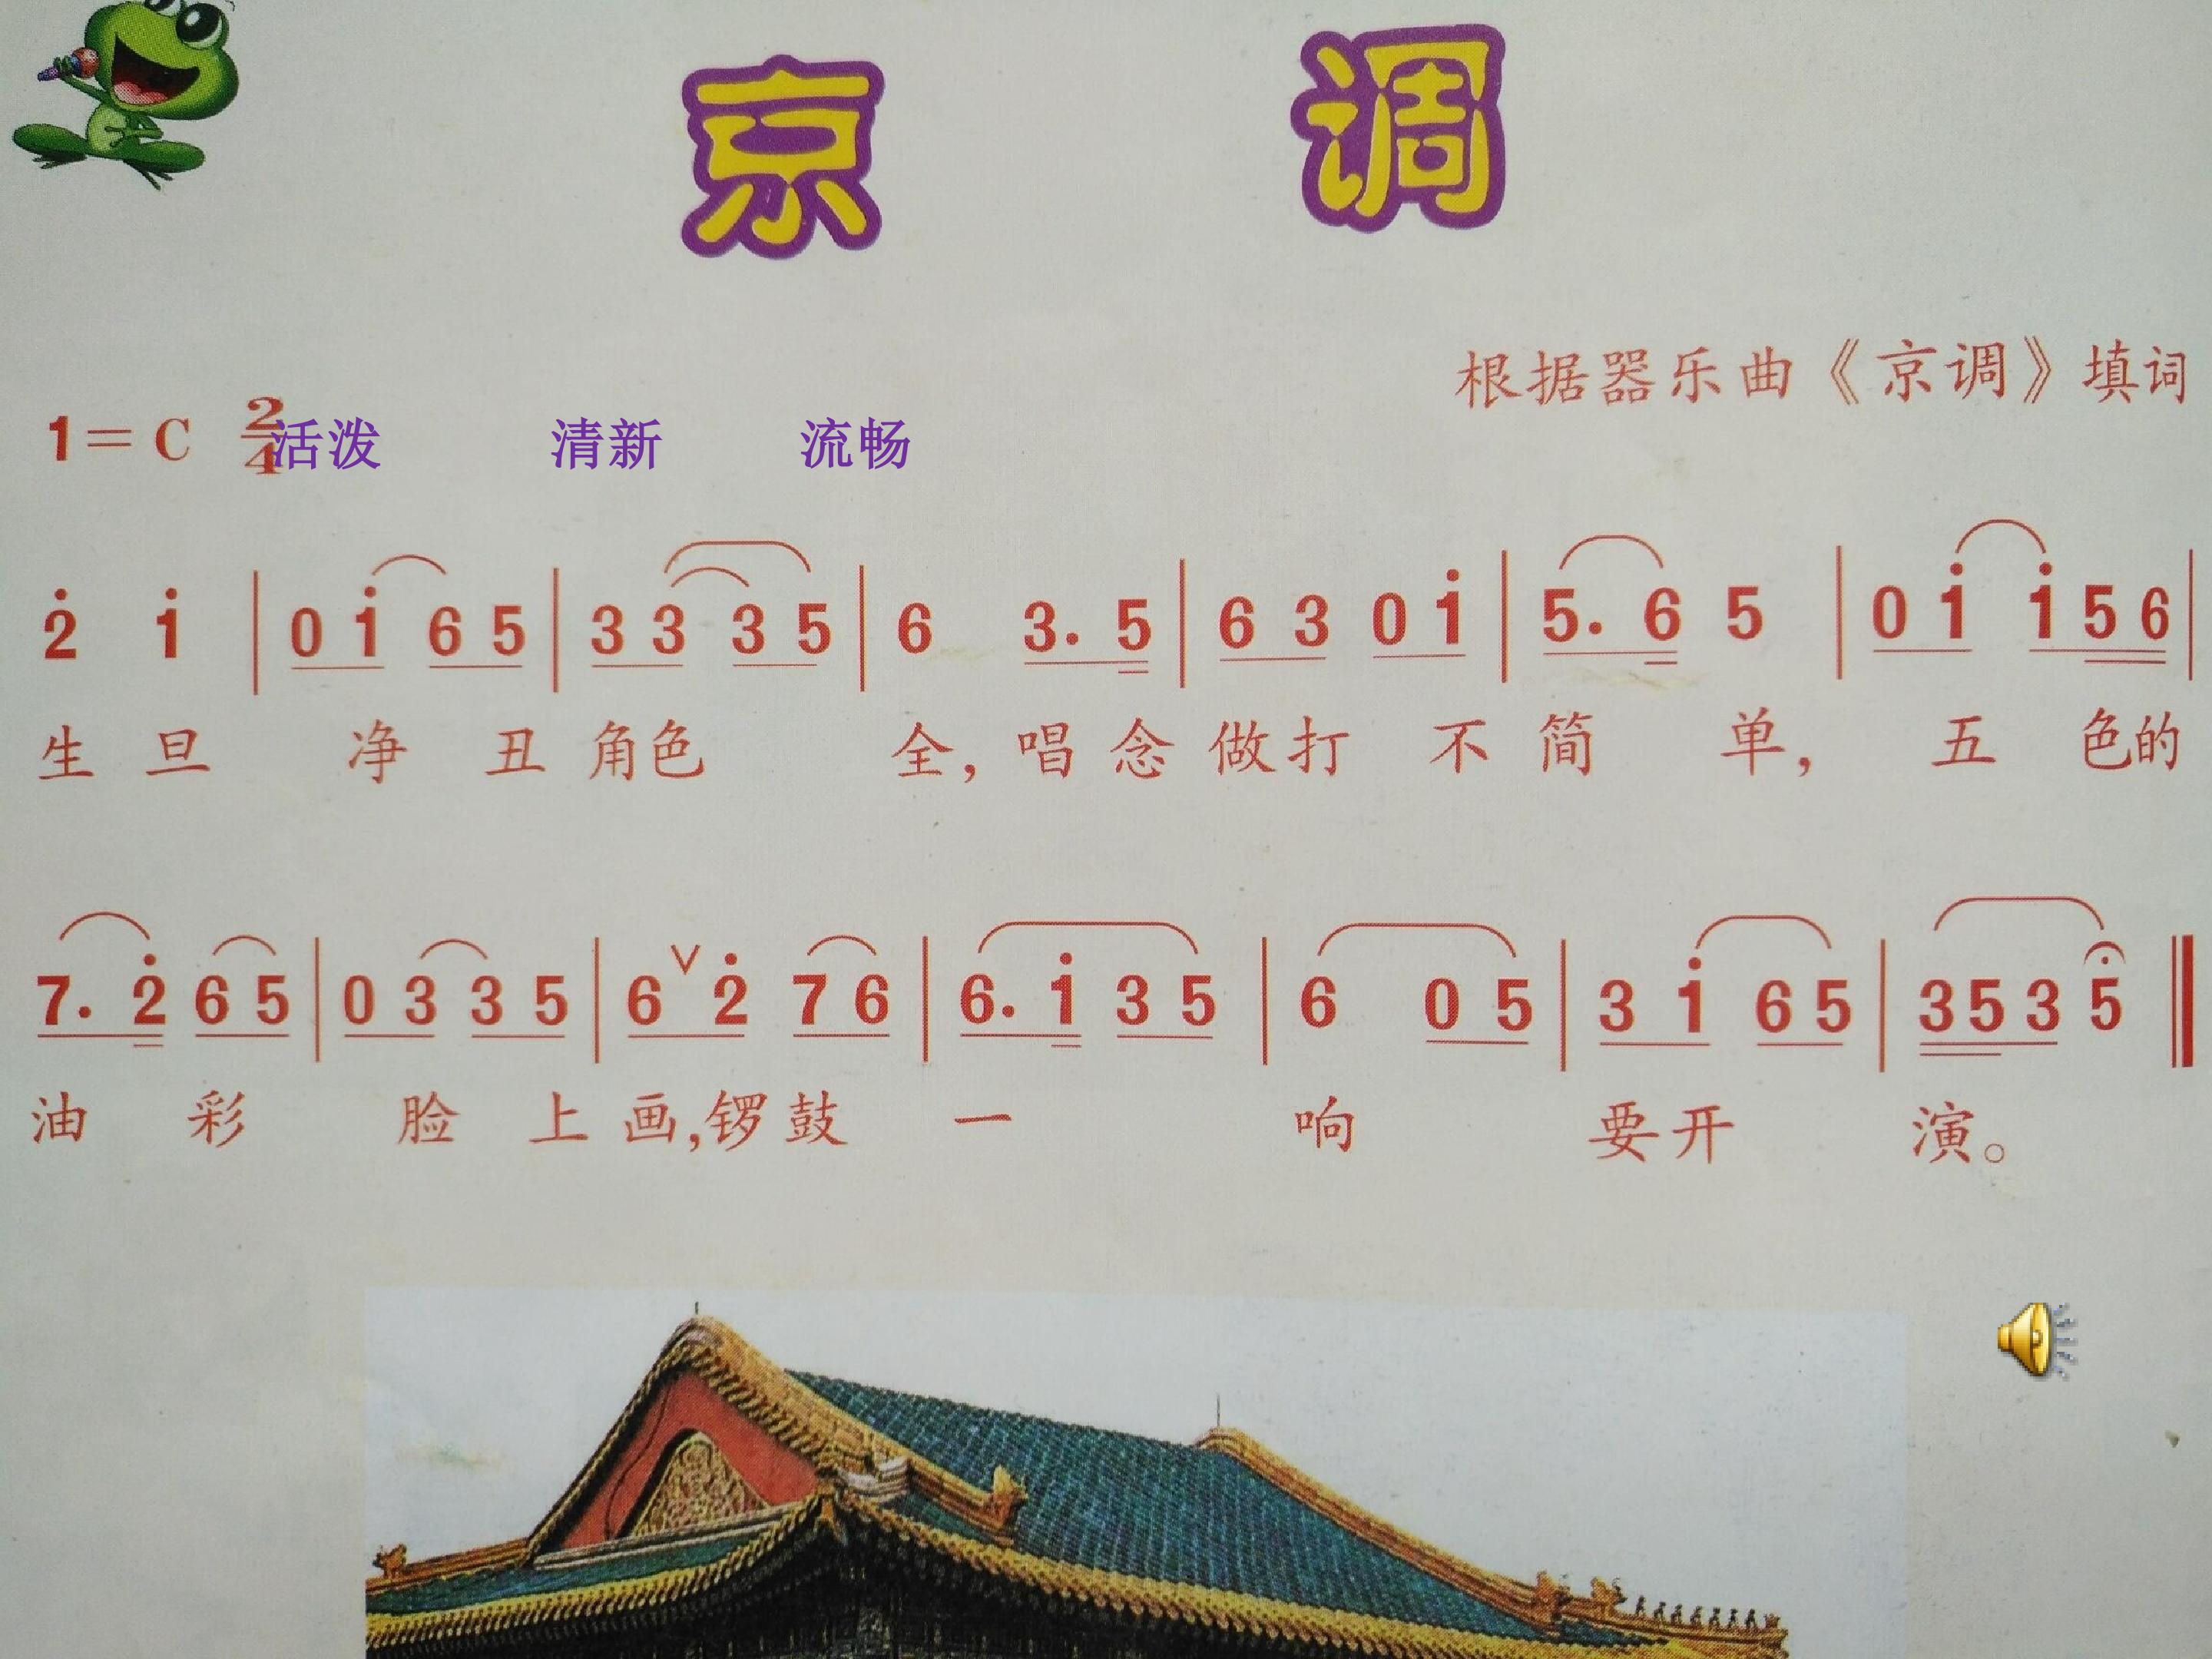 京 调
根据器乐曲《京调》填词
1=C 2/4 活泼 清新 流畅
2̇ 1̇ | 0 1̇ 6 5 | 3 3 3 5 | 6 3. 5 | 6 3 0 1̇ | 5. 6 5 | 0 1̇ 1̇ 5 6 |
生 旦 净 丑 角色 全, 唱 念 做打 不 简 单, 五 色的
7. 2̇ 6 5 | 0 3 3 5 | 6 ∨ 2̇ 7 6 | 6. 1̇ 3 5 | 6 0 5 | 3 1̇ 6 5 | 3 5 3 5 ‖
油 彩 脸 上 画,锣 鼓 一 响 要开 演。